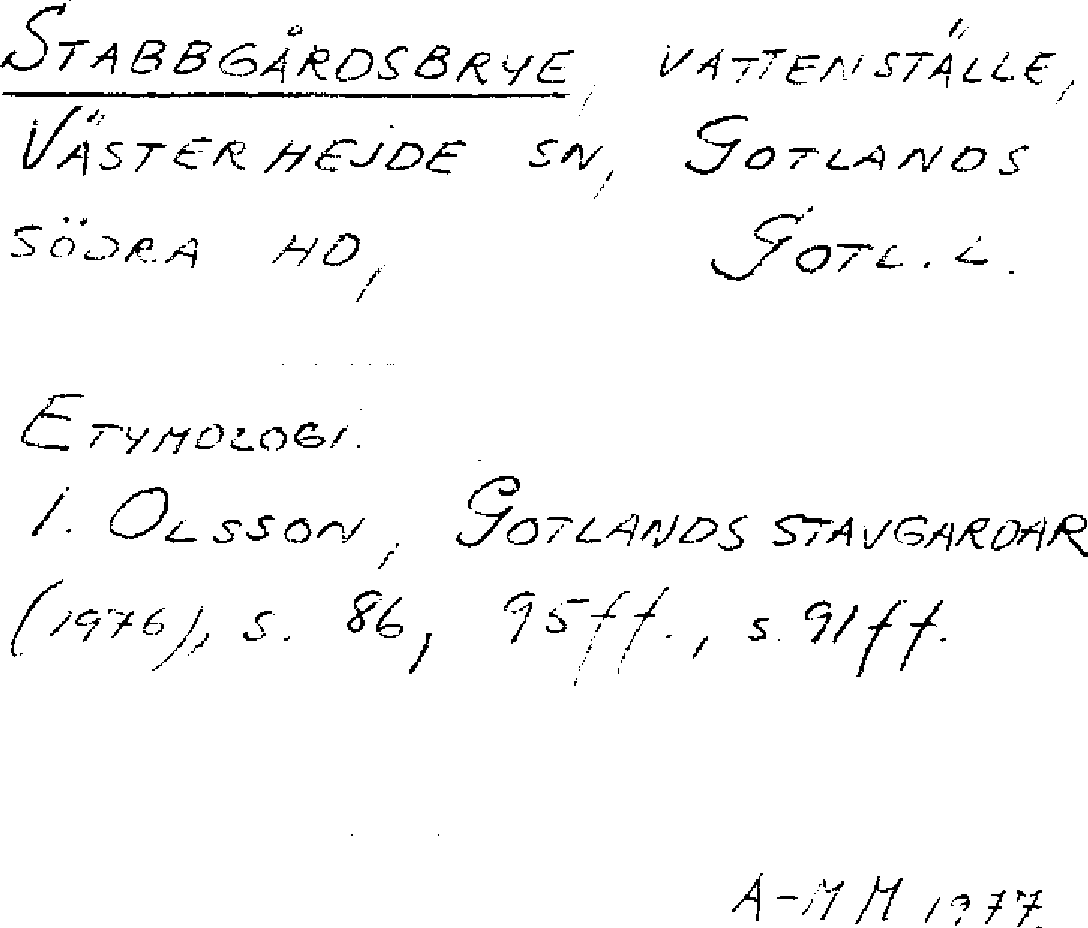 STABBGÅRDSBRYE, VATTENSTÄLLE,
VÄSTERHEJDE SN, GOTLANDS
SÖDRA HD, GOTL. L.
ETYMOLOGI.
I. OLSSON, GOTLANDS STAVGARDAR
(1976), S. 86, 95ff., S. 91ff.
A-MM 1977.